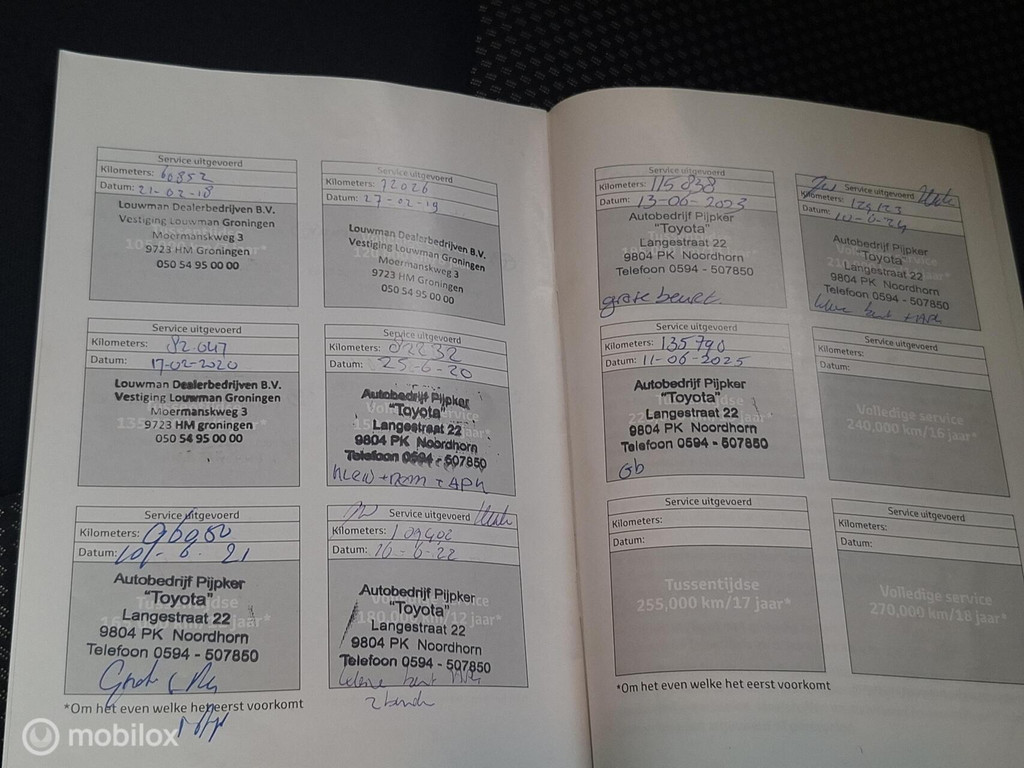 Service uitgevoerd
Kilometers: 60852
Datum: 21-02-18
Louwman Dealerbedrijven B.V.
Vestiging Louwman Groningen
Moermanskweg 3
9723 HM Groningen
050 54 95 00 00
Service uitgevoerd
Kilometers: 72026
Datum: 27-02-19
Louwman Dealerbedrijven B.V.
Vestiging Louwman Groningen
Moermanskweg 3
9723 HM Groningen
050 54 95 00 00
Service uitgevoerd
Kilometers: 82.047
Datum: 17-02-2020
Louwman Dealerbedrijven B.V.
Vestiging Louwman Groningen
Moermanskweg 3
9723 HM groningen
050 54 95 00 00
Service uitgevoerd
Kilometers:
Datum: 25-6-20
Autobedrijf Pijpker
"Toyota"
Langestraat 22
9804 PK Noordhorn
Telefoon 0594 - 507850
Service uitgevoerd
Kilometers:
Datum: 10-6-21
Tussentijdse
Autobedrijf Pijpker
"Toyota"
Langestraat 22
9804 PK Noordhorn
Telefoon 0594 - 507850
Grote
Service uitgevoerd
Kilometers:
Datum: 16-6-22
180,000 km/12 jaar*
Autobedrijf Pijpker
"Toyota"
Langestraat 22
9804 PK Noordhorn
Telefoon 0594 - 507850
*Om het even welke het eerst voorkomt
Service uitgevoerd
Kilometers: 115838
Datum: 13-06-2023
Autobedrijf Pijpker
"Toyota"
Langestraat 22
9804 PK Noordhorn
Telefoon 0594 - 507850
grote beurt
Service uitgevoerd
Kilometers:
Datum: 10-6-24
Autobedrijf Pijpker
"Toyota"
Langestraat 22
9804 PK Noordhorn
Telefoon 0594 - 507850
Service uitgevoerd
Kilometers: 135790
Datum: 11-06-2025
Tussentijdse
Autobedrijf Pijpker
"Toyota"
Langestraat 22
9804 PK Noordhorn
Telefoon 0594 - 507850
Gb
Service uitgevoerd
Kilometers:
Datum:
Volledige service
240,000 km/16 jaar*
Service uitgevoerd
Kilometers:
Datum:
Tussentijdse
255,000 km/17 jaar*
Service uitgevoerd
Kilometers:
Datum:
Volledige service
270,000 km/18 jaar*
*Om het even welke het eerst voorkomt
mobilox